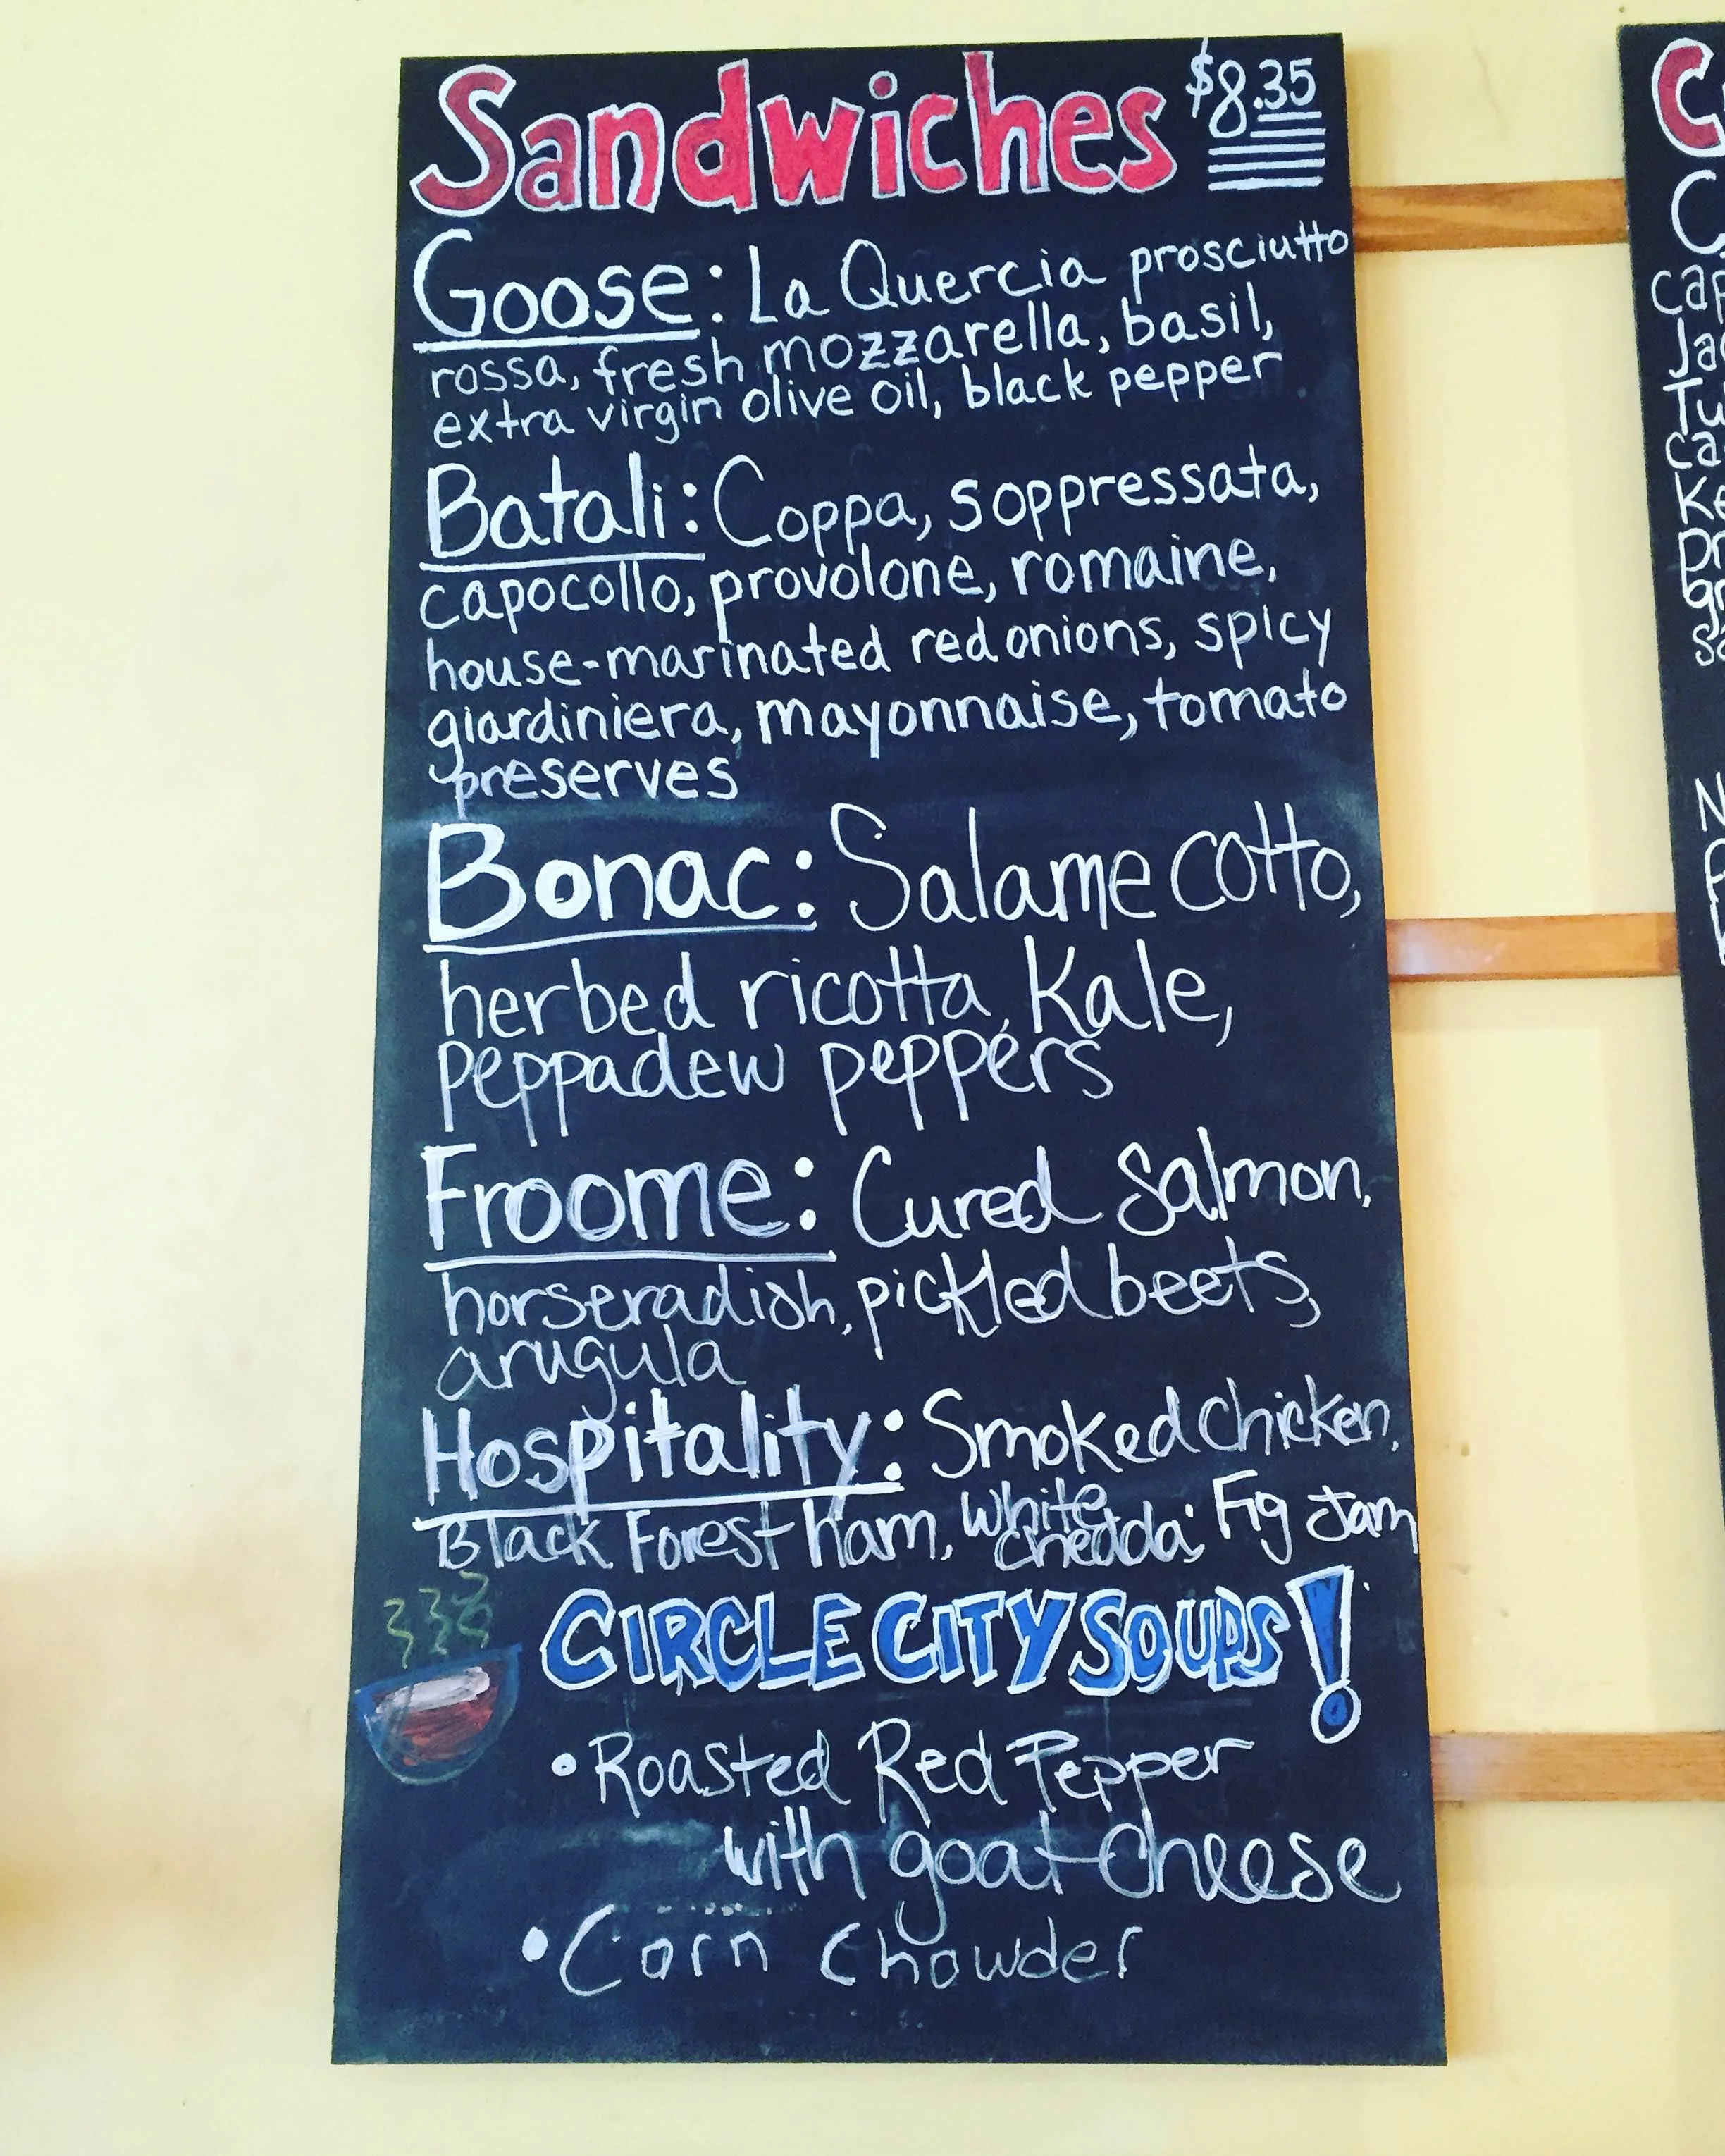 Sandwiches $8.35
Goose: La Quercia prosciutto
rossa, fresh mozzarella, basil,
extra virgin olive oil, black pepper
Batali: Coppa, soppressata,
capocollo, provolone, romaine,
house-marinated red onions, spicy
giardiniera, mayonnaise, tomato
preserves
Bonac: Salame cotto,
herbed ricotta, Kale,
peppadew peppers
Froome: Cured Salmon,
horseradish, pickled beets,
arugula
Hospitality: Smoked chicken,
Black Forest ham, white chedda, Fig Jam
CIRCLE CITY SOUPS!
• Roasted Red Pepper
with goat cheese
• Corn Chowder